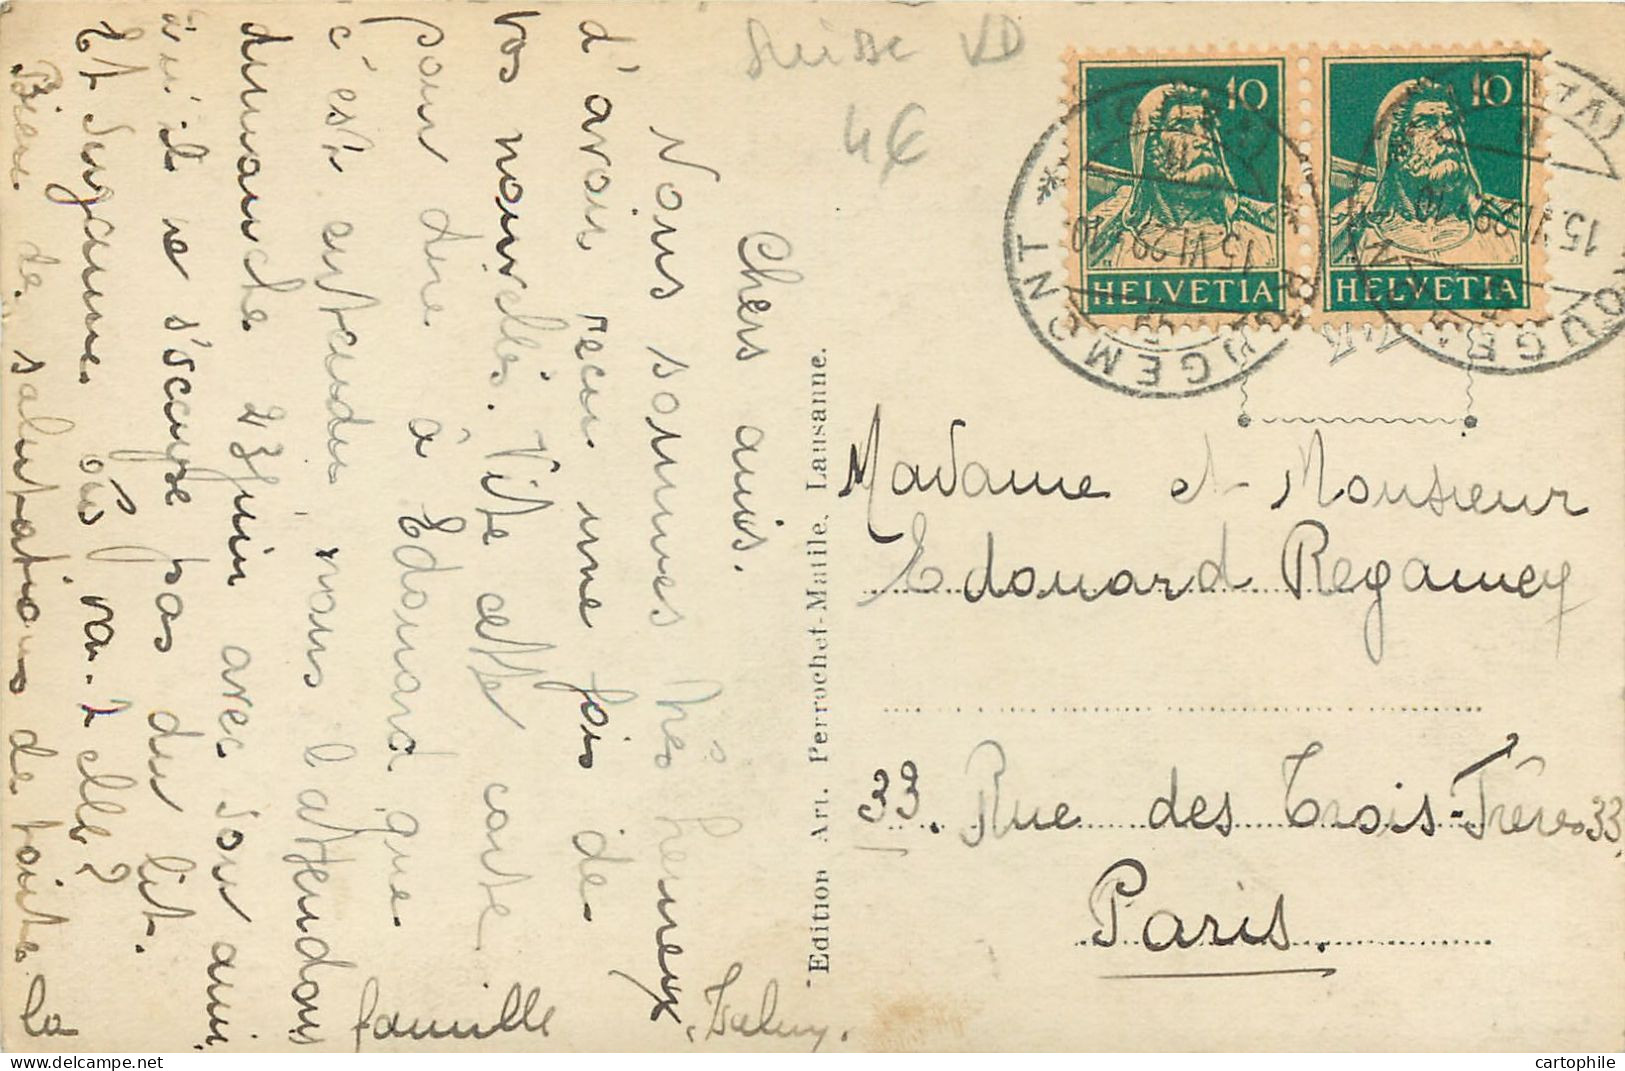 Suisse VD
4€
10
10
HELVETIA
HELVETIA
ROUGEMONT
15.VI.29.10
15.VI.29.10
Chers amis.
Nous sommes très heureux
d'avoir reçu une fois de
vos nouvelles. Vite cette carte
pour dire à Edouard que
c'est entendu nous l'attendons
dimanche 23 juin avec son ami
qu'il ne s'occupe pas du lit.
Et Suzanne où va-t-elle?
Bien de salutations de toute la
famille
Edition Art. Perrochet-Matile, Lausanne.
Madame et Monsieur
Edouard Regamey
33. Rue des Trois-Frères 33.
Paris.
cartophile